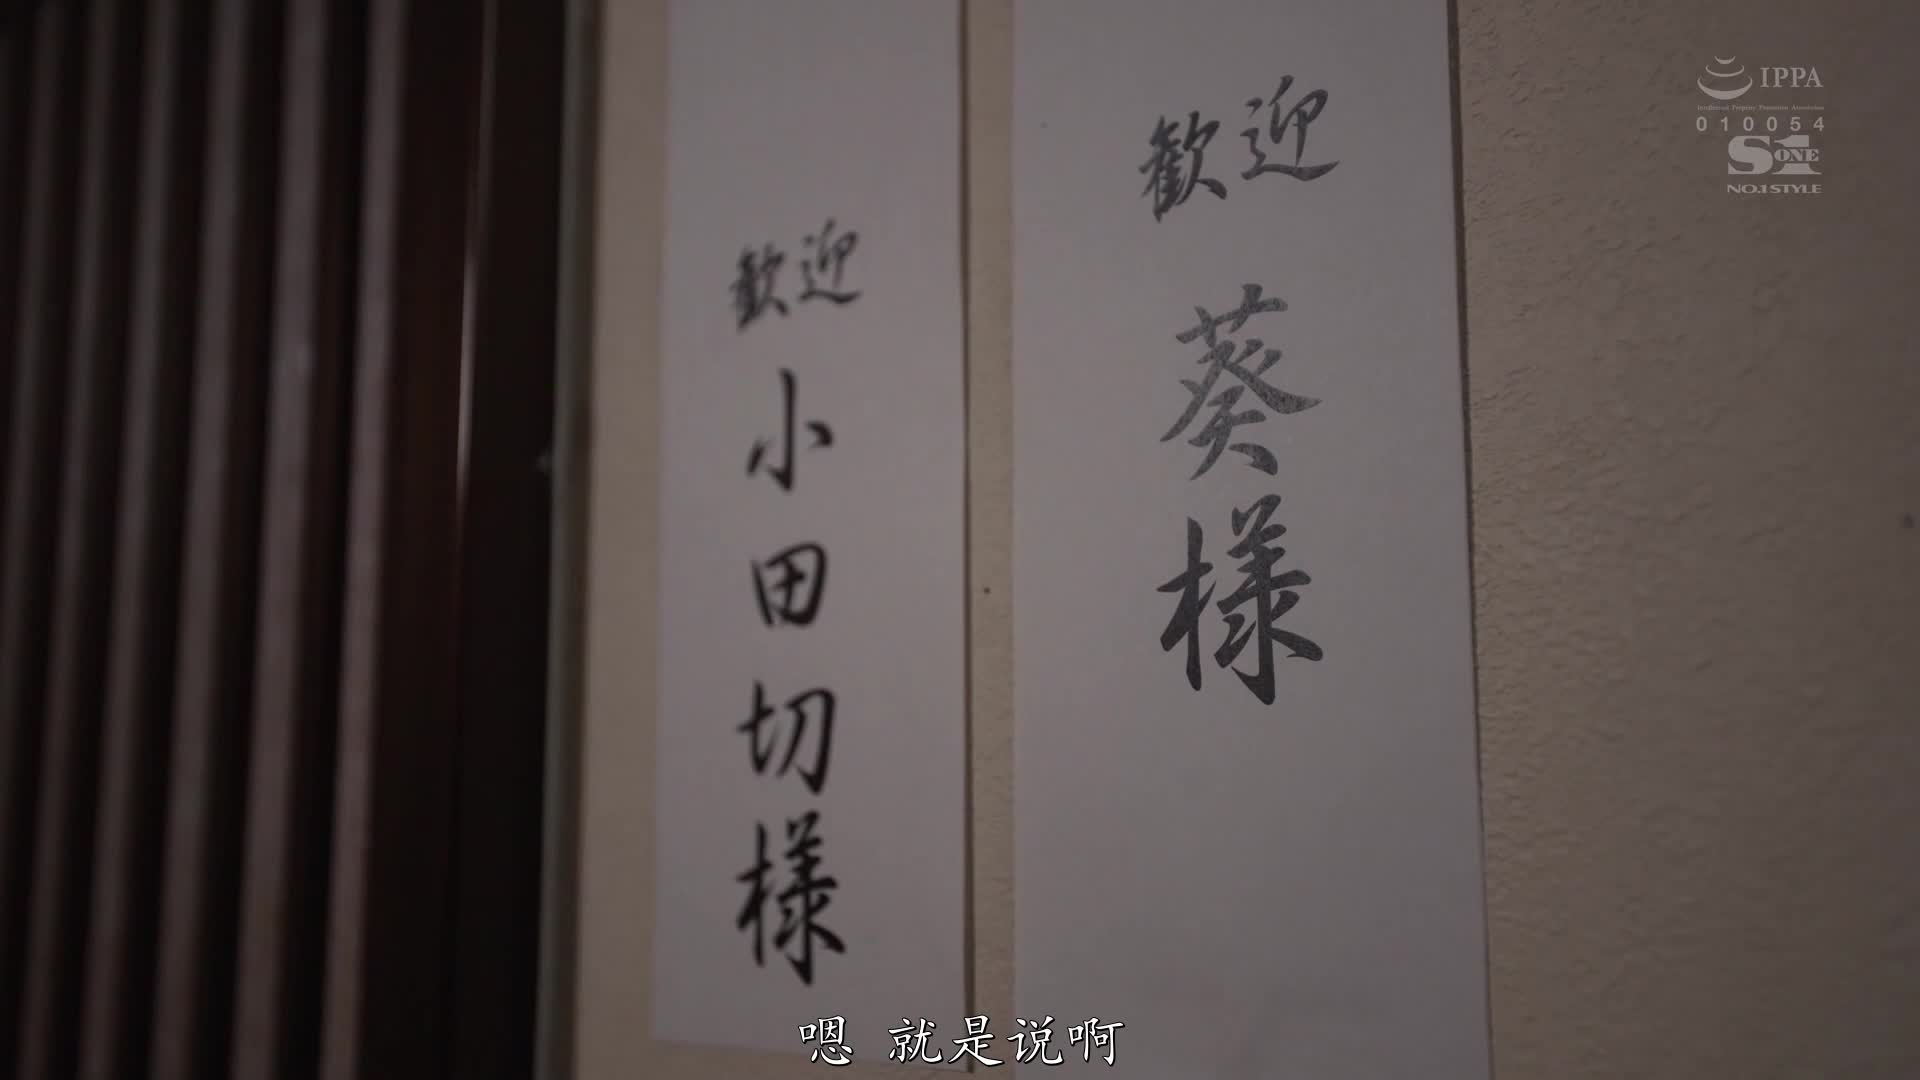 歓迎
葵様
歓迎
小田切様
IPPA
Intellectual Property Promotion Association
010054
S1
ONE
NO.1 STYLE
嗯 就是说啊